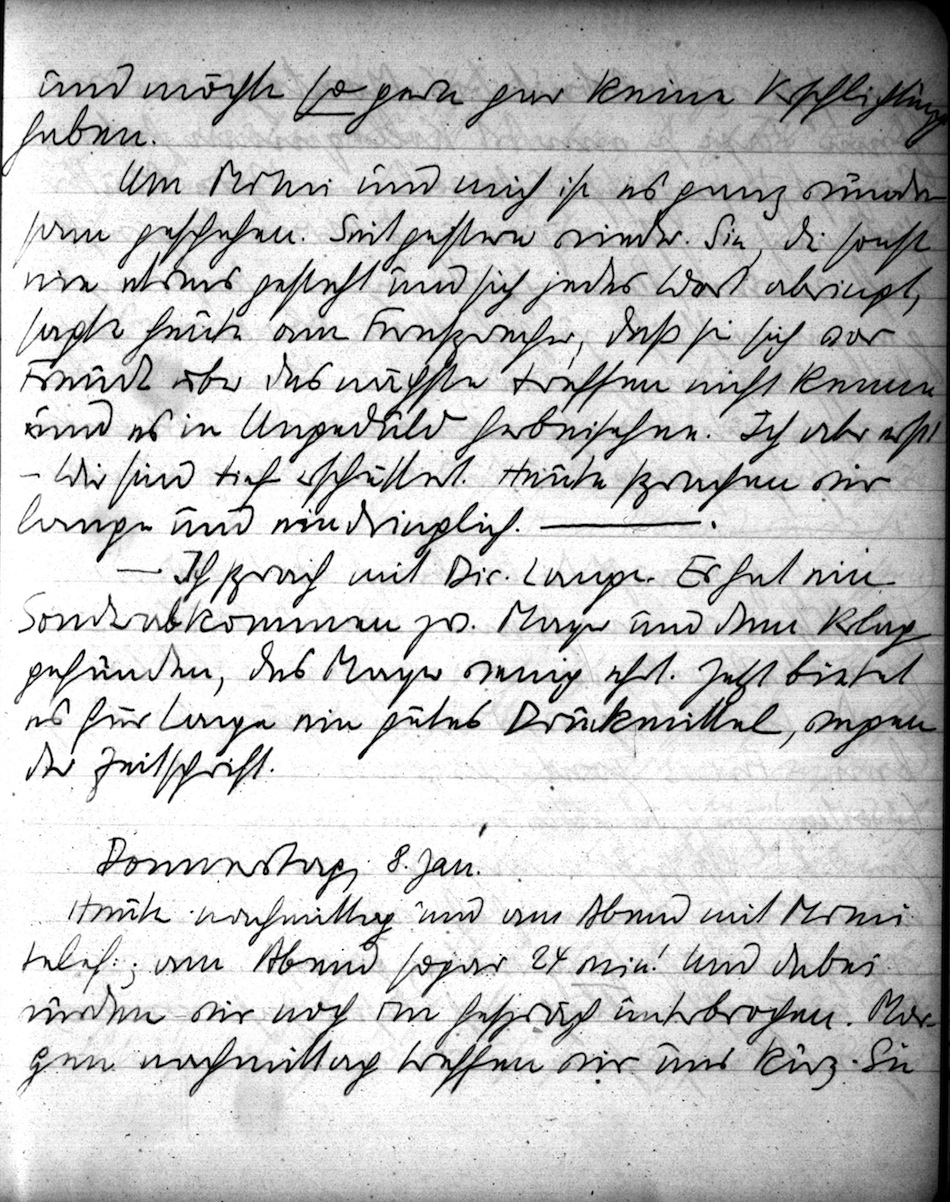 und möchte so gern gar keine Verpflichtung
haben.
Um Mimi und mich ist es ganz wunder-
sam geschehen. Seit gestern wieder. Sie, die sonst
nie etwas gesteht und sich jedes Wort abringt,
sagte heute am Fernsprecher, daß sie sich vor
Freude über das nächste Treffen nicht kenne
und es in Ungeduld herbeisehne. Ich aber erst!
– Wir sind tief erschüttert. Heute sprachen wir
lange und eindringlich. ———.
— Ich sprach mit Dir. Lange. Er hat ein
Sonderabkommen zw. Mayer und dem
gefunden, das Mayer wenig ehrt. Jetzt bietet
es für Lange ein gutes Druckmittel, wegen
der Zeitschrift.
Donnerstag, 8. Jan.
Heute nachmittag und am Abend mit Mimi
telef.; am Abend sogar 24 min! Und dabei
wurden wir noch im Gespräch unterbrochen. Mor-
gen nachmittag treffen wir uns kurz. Sie